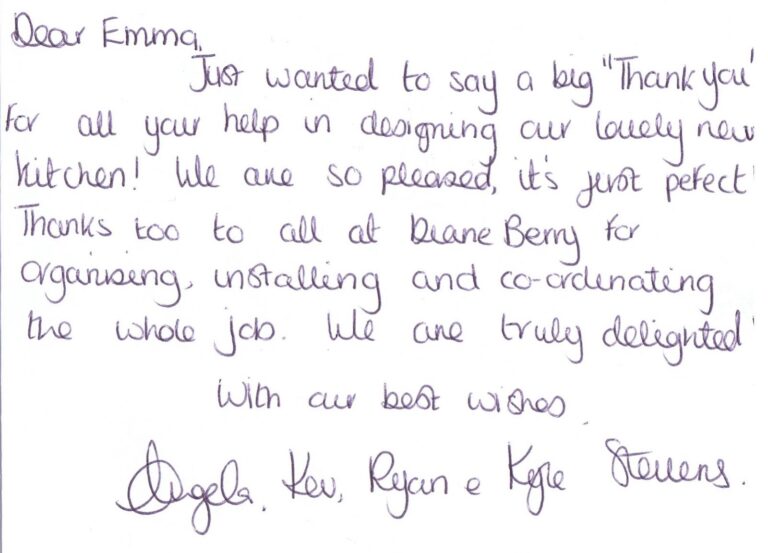 Dear Emma,
Just wanted to say a big "Thank you"
for all your help in designing our lovely new
kitchen! We are so pleased, it's just pefect!
Thanks too to all at Diane Berry for
organising, installing and co-ordinating
the whole job. We are truly delighted!
With our best wishes.
Angela, Kev, Ryan & Kyle Stevens.